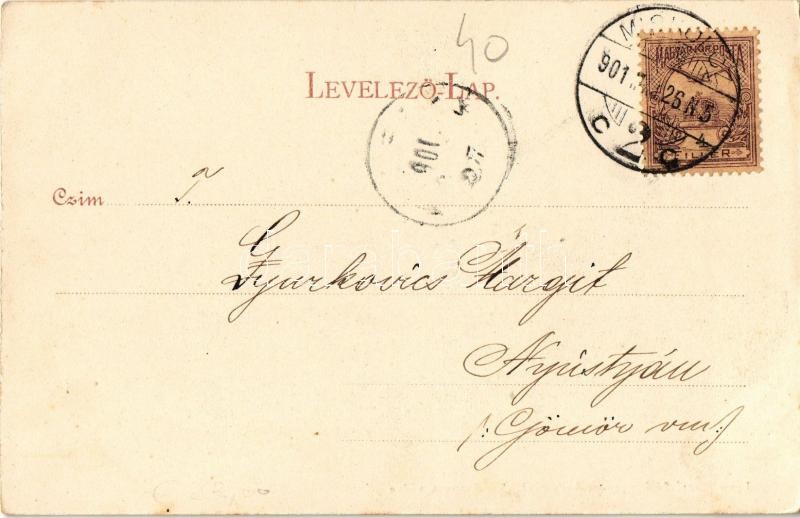 40
LEVELEZŐ-LAP.
MAGYAR KIR. POSTA
MISKOLC
901
26 N 5
C 2 C
FILLÉR
901
27
Czim T.
Gyurkovics Margit
Nyústyán
/: Gömör vm :/